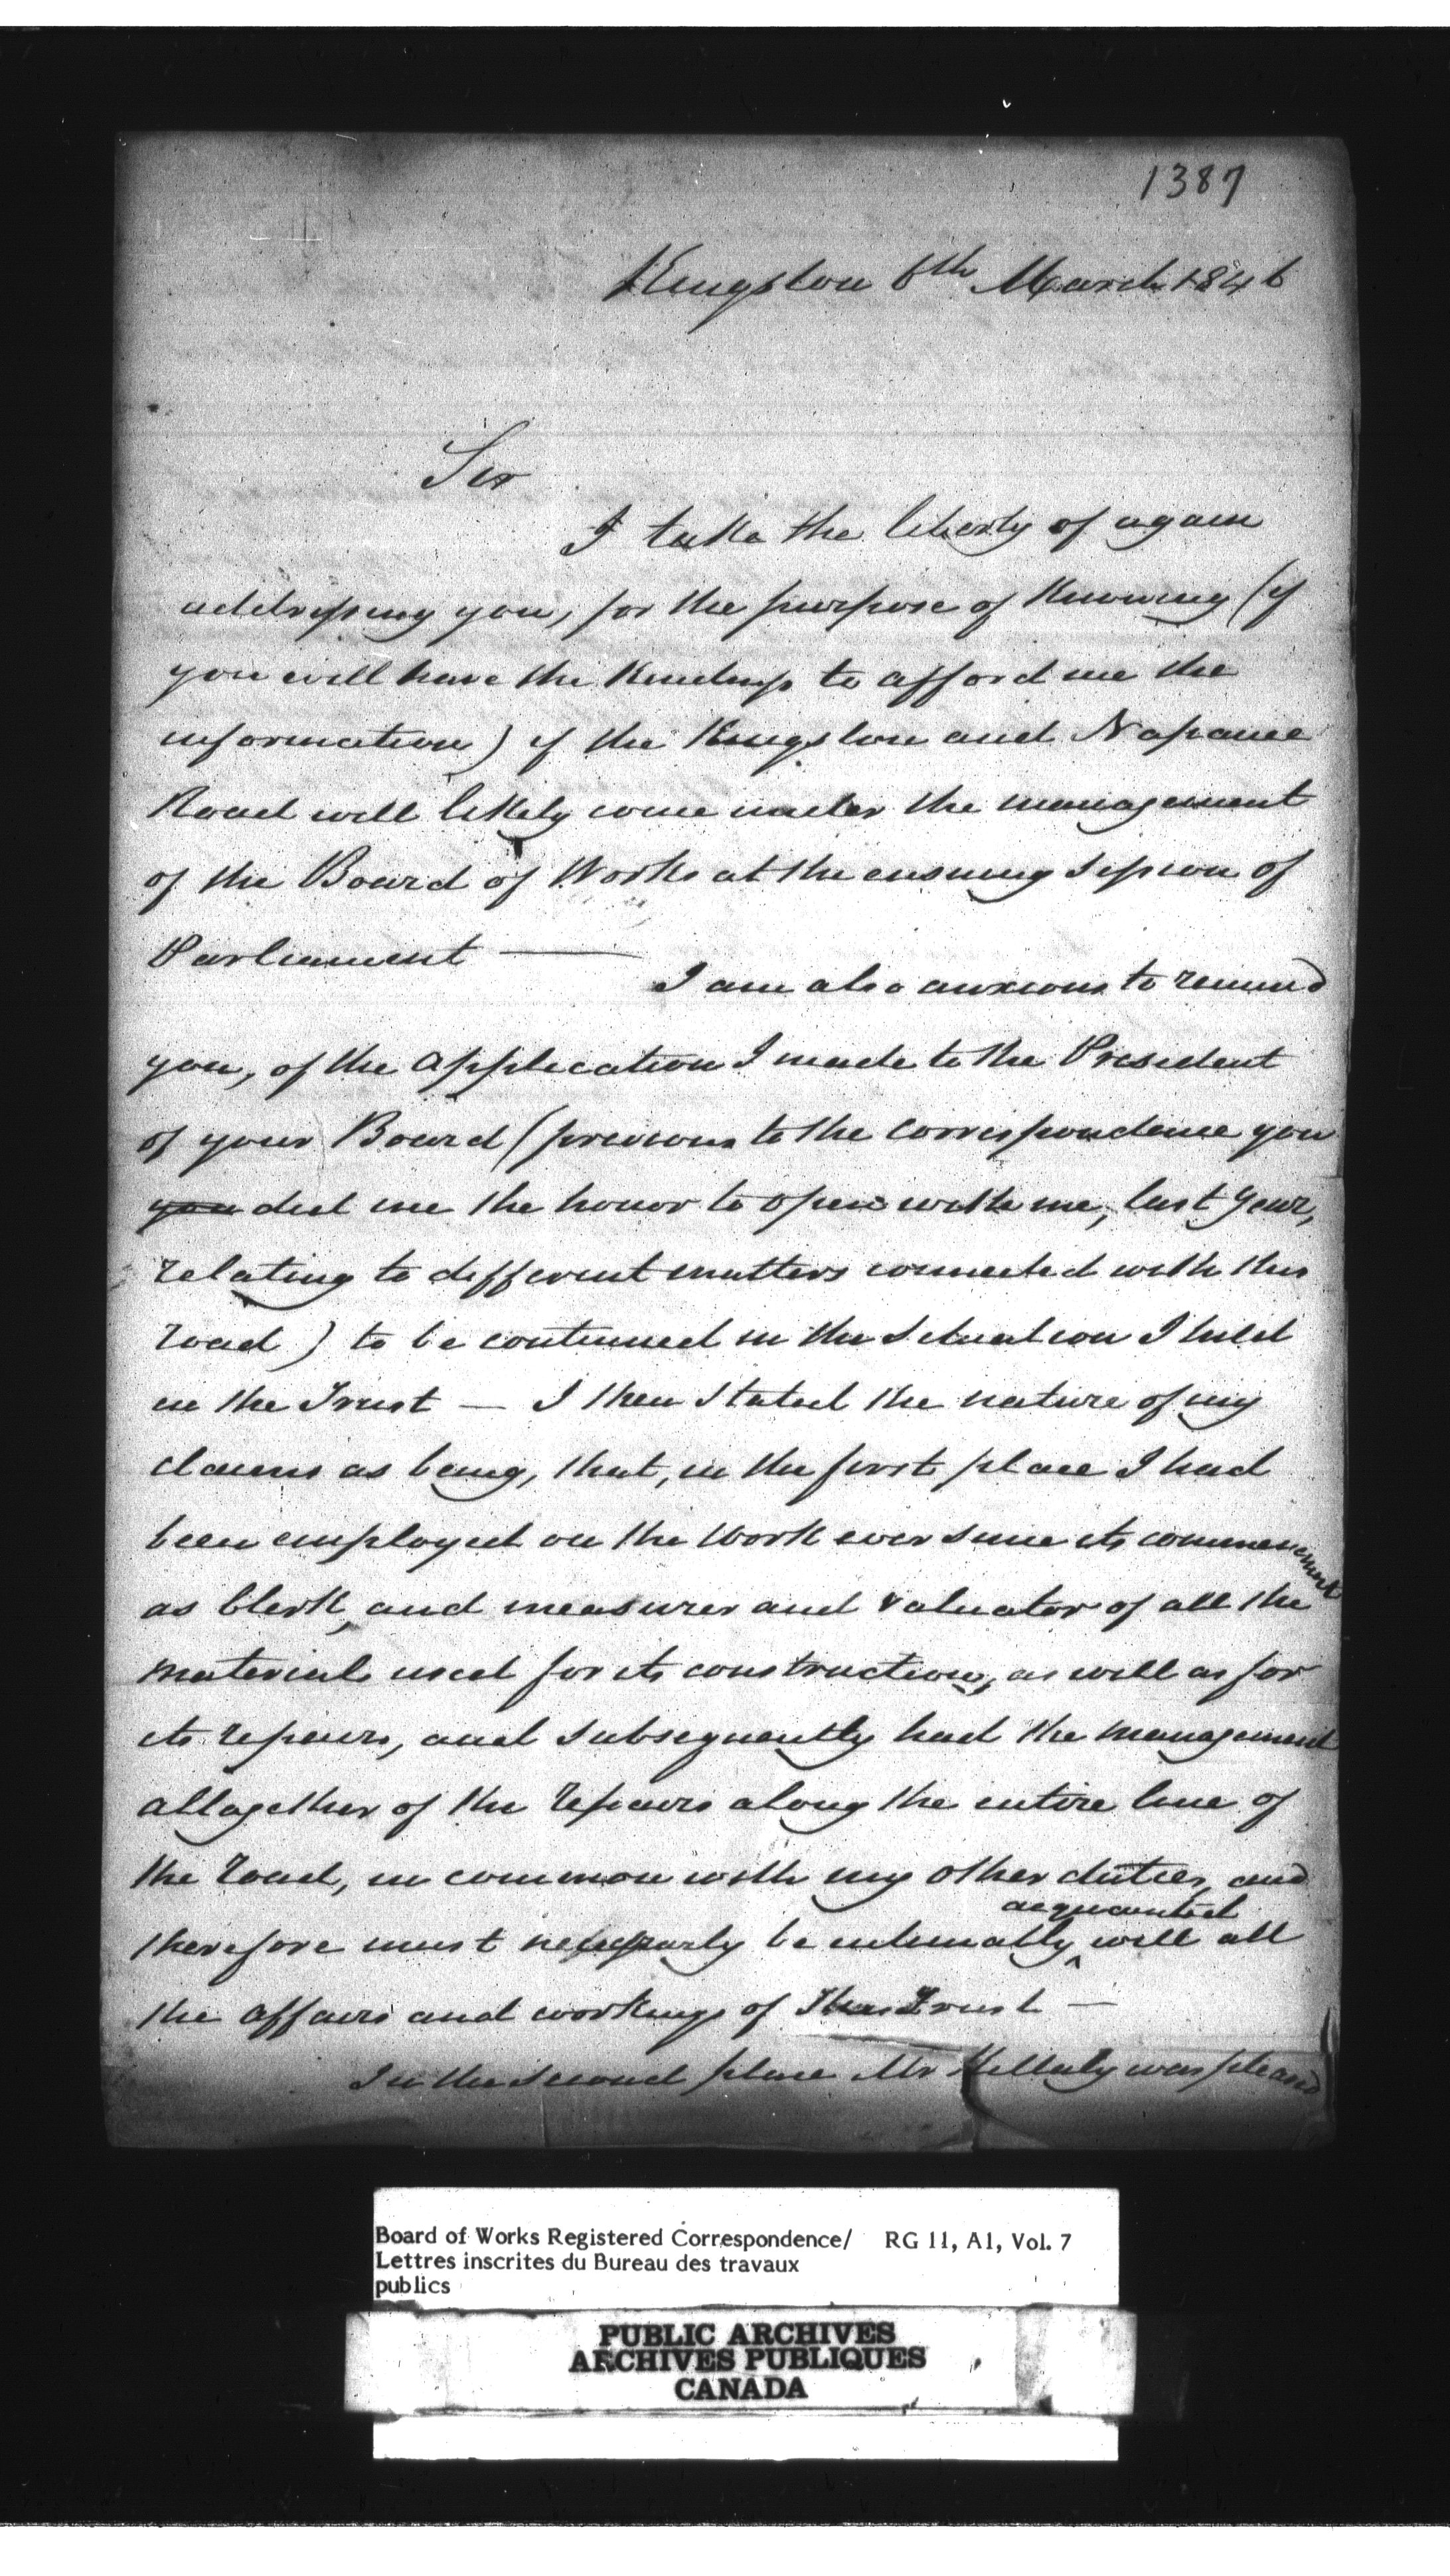 1387
Kingston 6th March 1846
Sir
I take the liberty of again
addressing you, for the purpose of knowing (if
you will have the kindness to afford me the
information) if the Kingston and Napanee
Road will likely come under the management
of the Board of Works at the ensuing Session of
Parliament —
I am also anxious to remind
you, of the application I made to the President
of your Board (previous to the correspondence you
you did me the honor to open with me, last year,
relating to different matters connected with this
road) to be continued in the situation I held
in the Trust — I then stated the nature of my
claims as being, that, in the first place I had
been employed on the work ever since its commencement
as Clerk, and measurer and valuator of all the
materials used for its construction, as well as for
its repairs, and subsequently had the management
altogether of the repairs along the entire line of
the road, in common with my other duties, and
acquainted
therefore must necessarily be intimately ^ with all
the affairs and workings of this Trust —
In the second place Mr Killaly was pleased
Board of Works Registered Correspondence/ RG 11, A1, Vol. 7
Lettres inscrites du Bureau des travaux
publics
PUBLIC ARCHIVES
ARCHIVES PUBLIQUES
CANADA